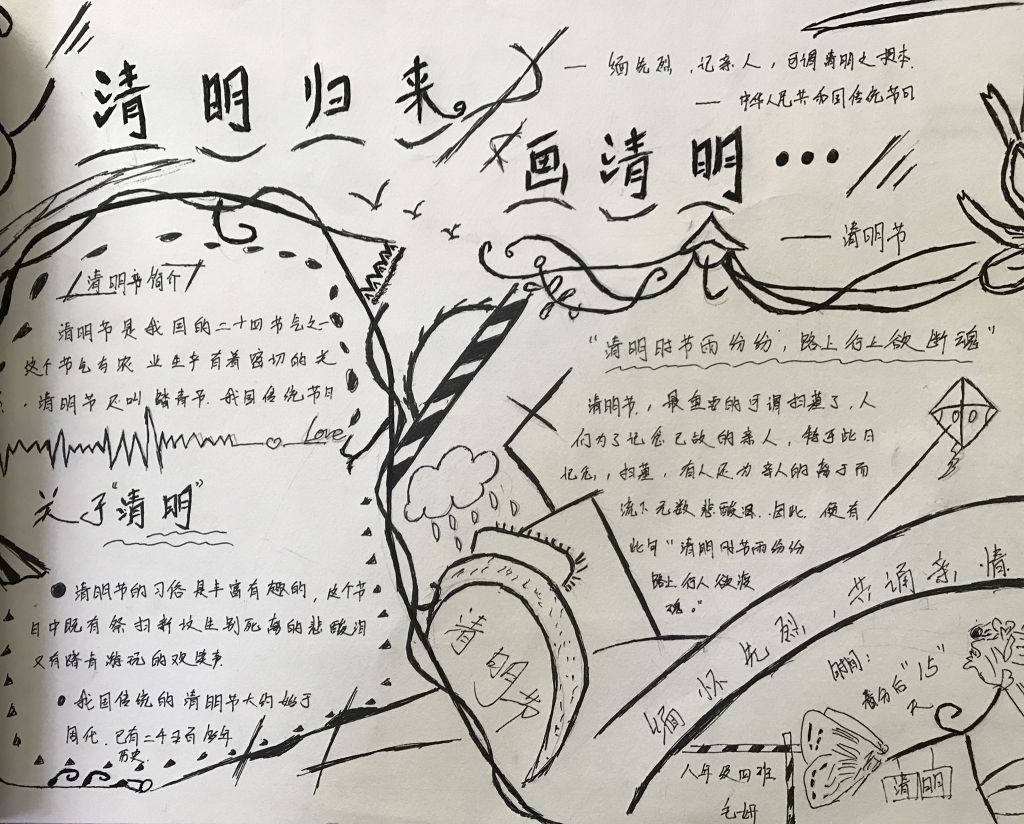 清明归来
— 缅先烈，记亲人，可谓清明之根本.
— 中华人民共和国传统节日
画清明...
— 清明节
清明节简介
清明节是我国的二十四节气之一
这个节气与农业生产有着密切的关
，清明节又叫踏青节.我国传统节日
Love
关于"清明"
清明节的习俗是丰富有趣的，这个节
日中既有祭扫新坟生别死离的悲酸泪
又有踏青游玩的欢笑声.
我国传统的清明节大约始于
周代.已有二千五百多年
历史.
"清明时节雨纷纷，路上行上欲断魂"
清明节，最重要的可谓扫墓了.人
们为了记念已故的亲人，特于此日
记念，扫墓，有人还为亲人的离于而
流下无数悲酸泪.因此.便有
此句"清明时节雨纷纷
路上行人欲断
魂。"
清明节
缅怀先烈，共诵亲情
时间：
春分后"15"
天
八年级四班
清明